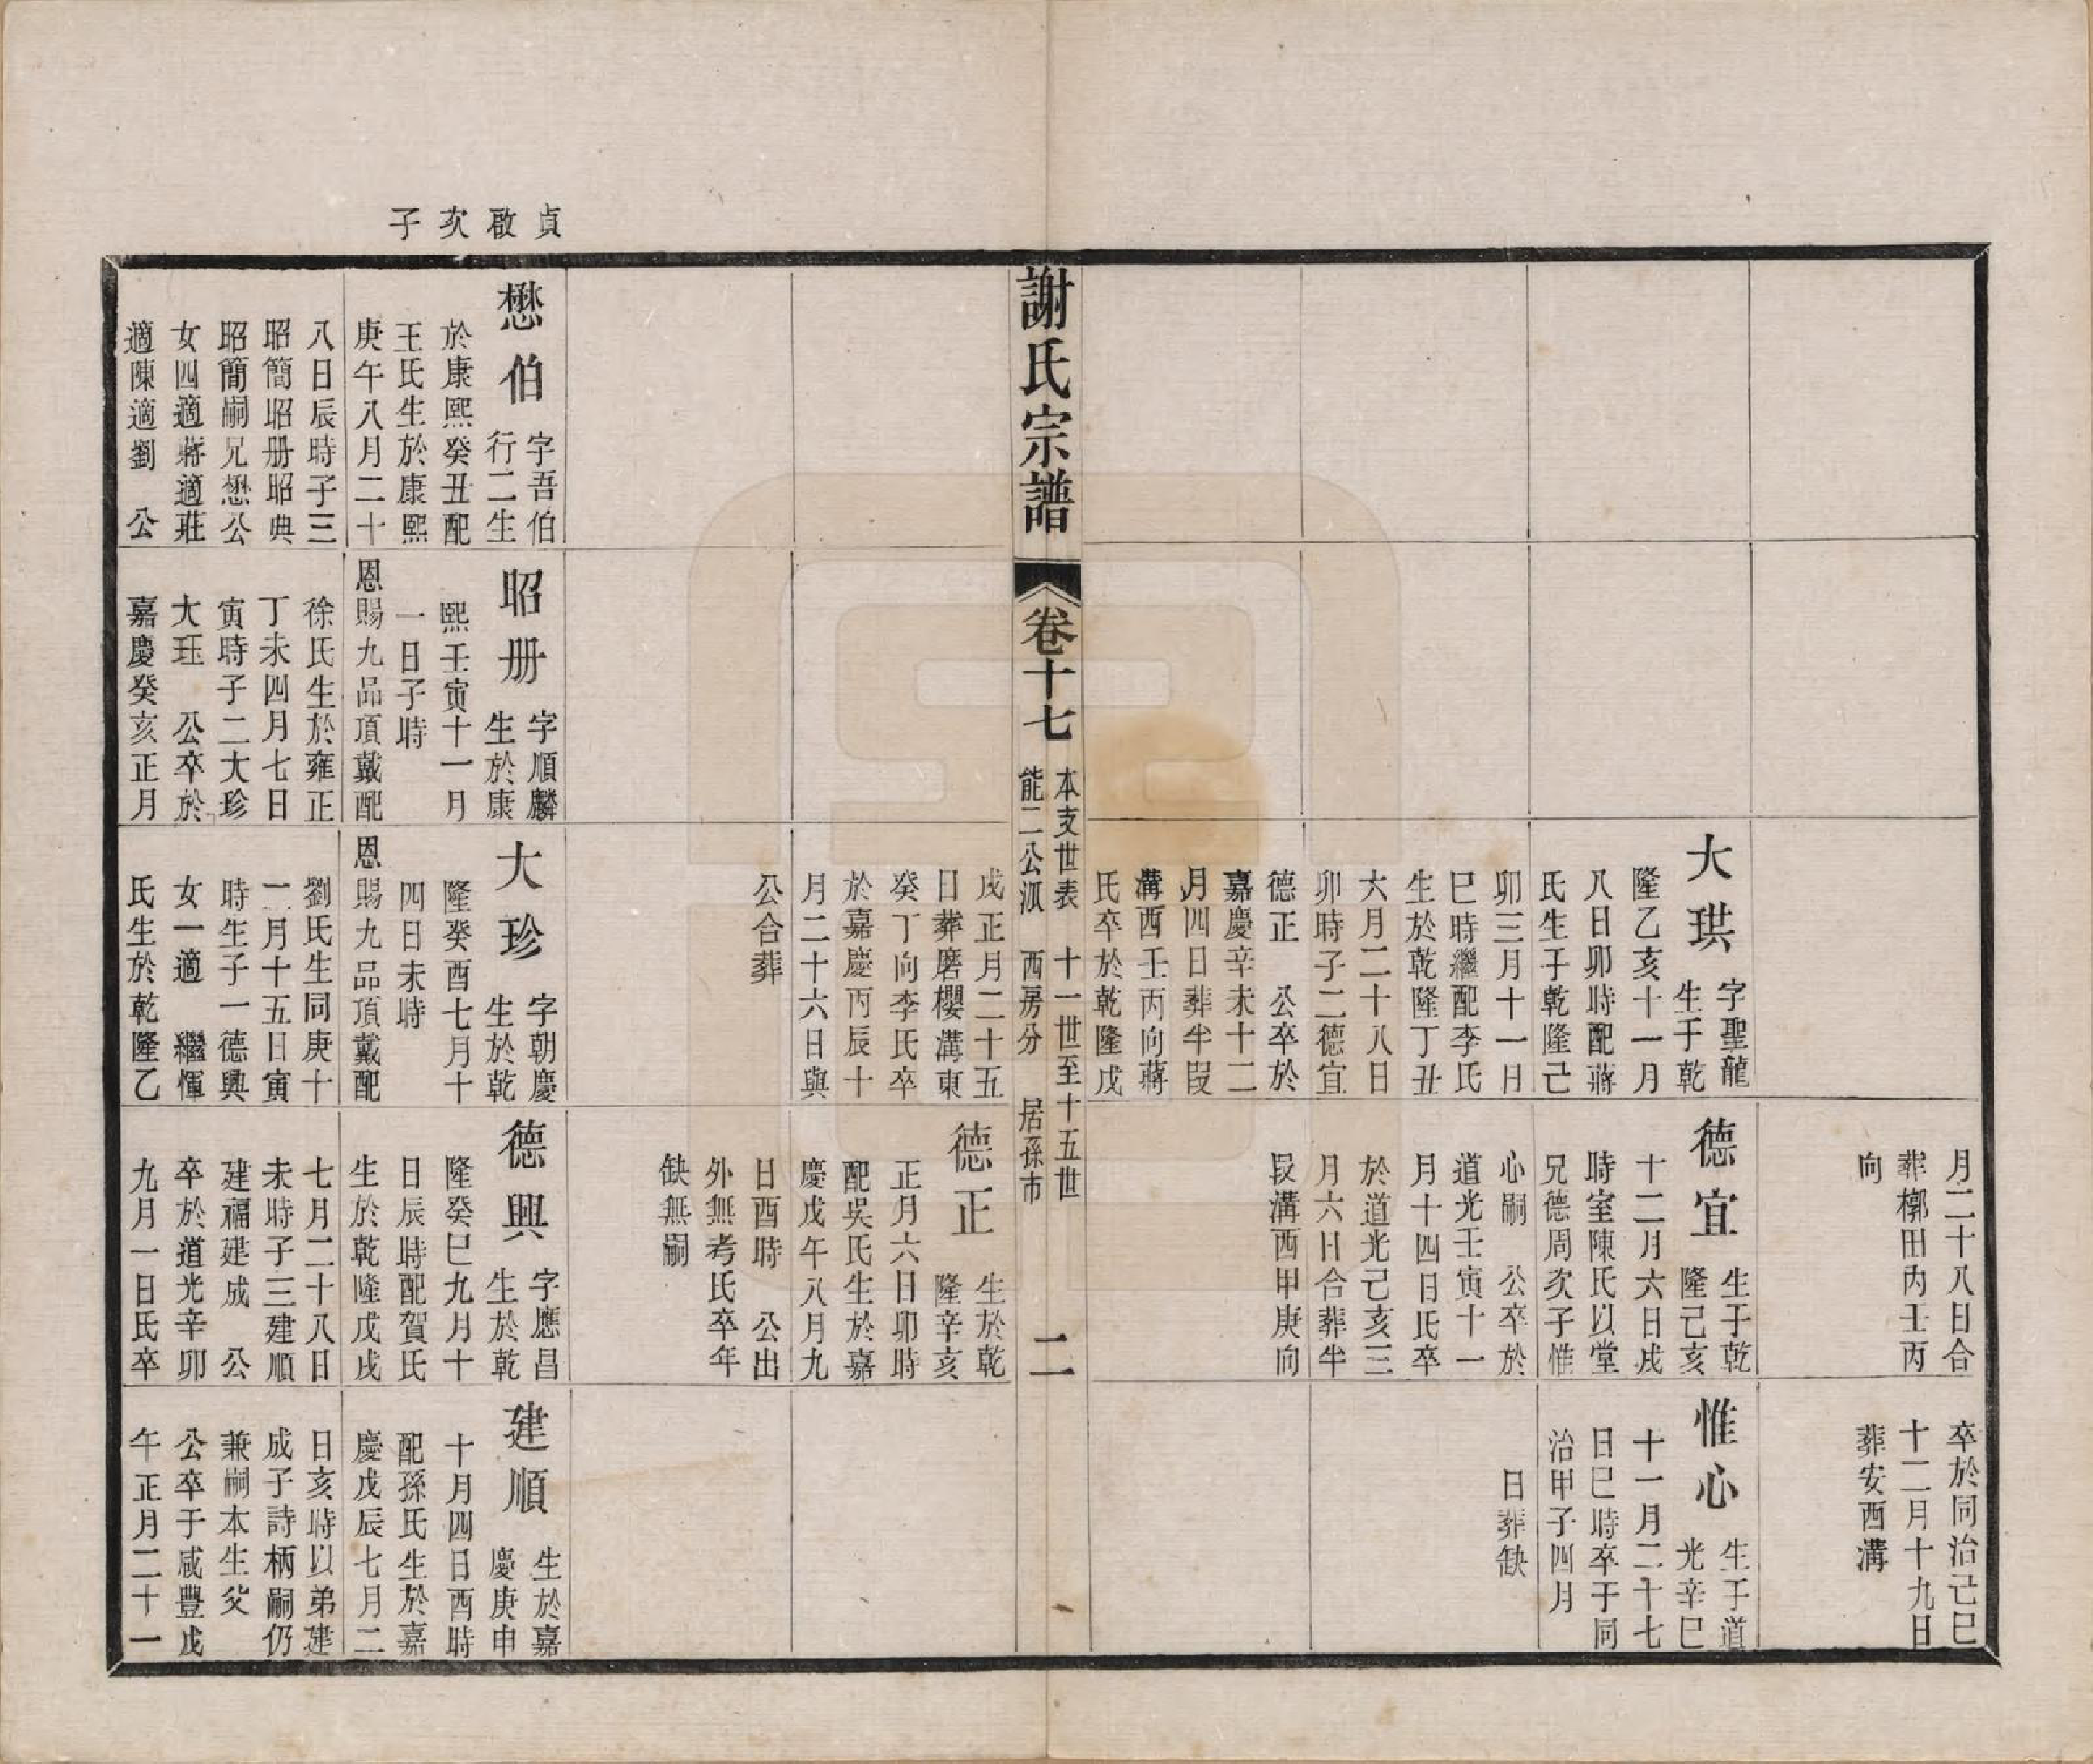 月二十八日合
葬槨田内壬丙
向
卒於同治己巳
十二月十九日
葬安西溝
大珙
字聖龍
生于乾
隆乙亥十一月
八日卯時配蔣
氏生于乾隆己
卯三月十一日
巳時繼配李氏
生於乾隆丁丑
六月二十八日
卯時子二德宜
德正　公卒於
嘉慶辛未十二
月四日葬半段
溝西壬丙向蔣
氏卒於乾隆戊
德宜
生于乾
隆己亥
十二月六日戌
時室陳氏以堂
兄德周次子惟
心嗣　公卒於
道光壬寅十一
月十四日氏卒
於道光己亥三
月六日合葬半
段溝西甲庚向
惟心
生于道
光辛巳
十一月二十七
日巳時卒于同
治甲子四月
日葬缺
謝氏宗譜
卷十七
本支世表　十一世至十五世
能二公派　西房分　居孫市
二
戌正月二十五
日葬磨櫻溝東
癸丁向李氏卒
於嘉慶丙辰十
月二十六日與
公合葬
德正
生於乾
隆辛亥
正月六日卯時
配吳氏生於嘉
慶戊午八月九
日酉時　公出
外無考氏卒年
缺無嗣
貞
啟
次
子
懋伯
字吾伯
行二生
於康熙癸丑配
王氏生於康熙
庚午八月二十
八日辰時子三
昭簡昭册昭典
昭簡嗣兄懋公
女四適蔣適莊
適陳適劉　公
昭册
字順麟
生於康
熙壬寅十一月
一日子時
恩賜九品頂戴配
徐氏生於雍正
丁未四月七日
寅時子二大珍
大珏　公卒於
嘉慶癸亥正月
大珍
字朝慶
生於乾
隆癸酉七月十
四日未時
恩賜九品頂戴配
劉氏生同庚十
二月十五日寅
時生子一德興
女一適　繼惲
氏生於乾隆乙
德興
字應昌
生於乾
隆癸巳九月十
日辰時配賀氏
生於乾隆戊戌
七月二十八日
未時子三建順
建福建成　公
卒於道光辛卯
九月一日氏卒
建順
生於嘉
慶庚申
十月四日酉時
配孫氏生於嘉
慶戊辰七月二
日亥時以弟建
成子詩柄嗣仍
兼嗣本生父
公卒于咸豐戊
午正月二十一